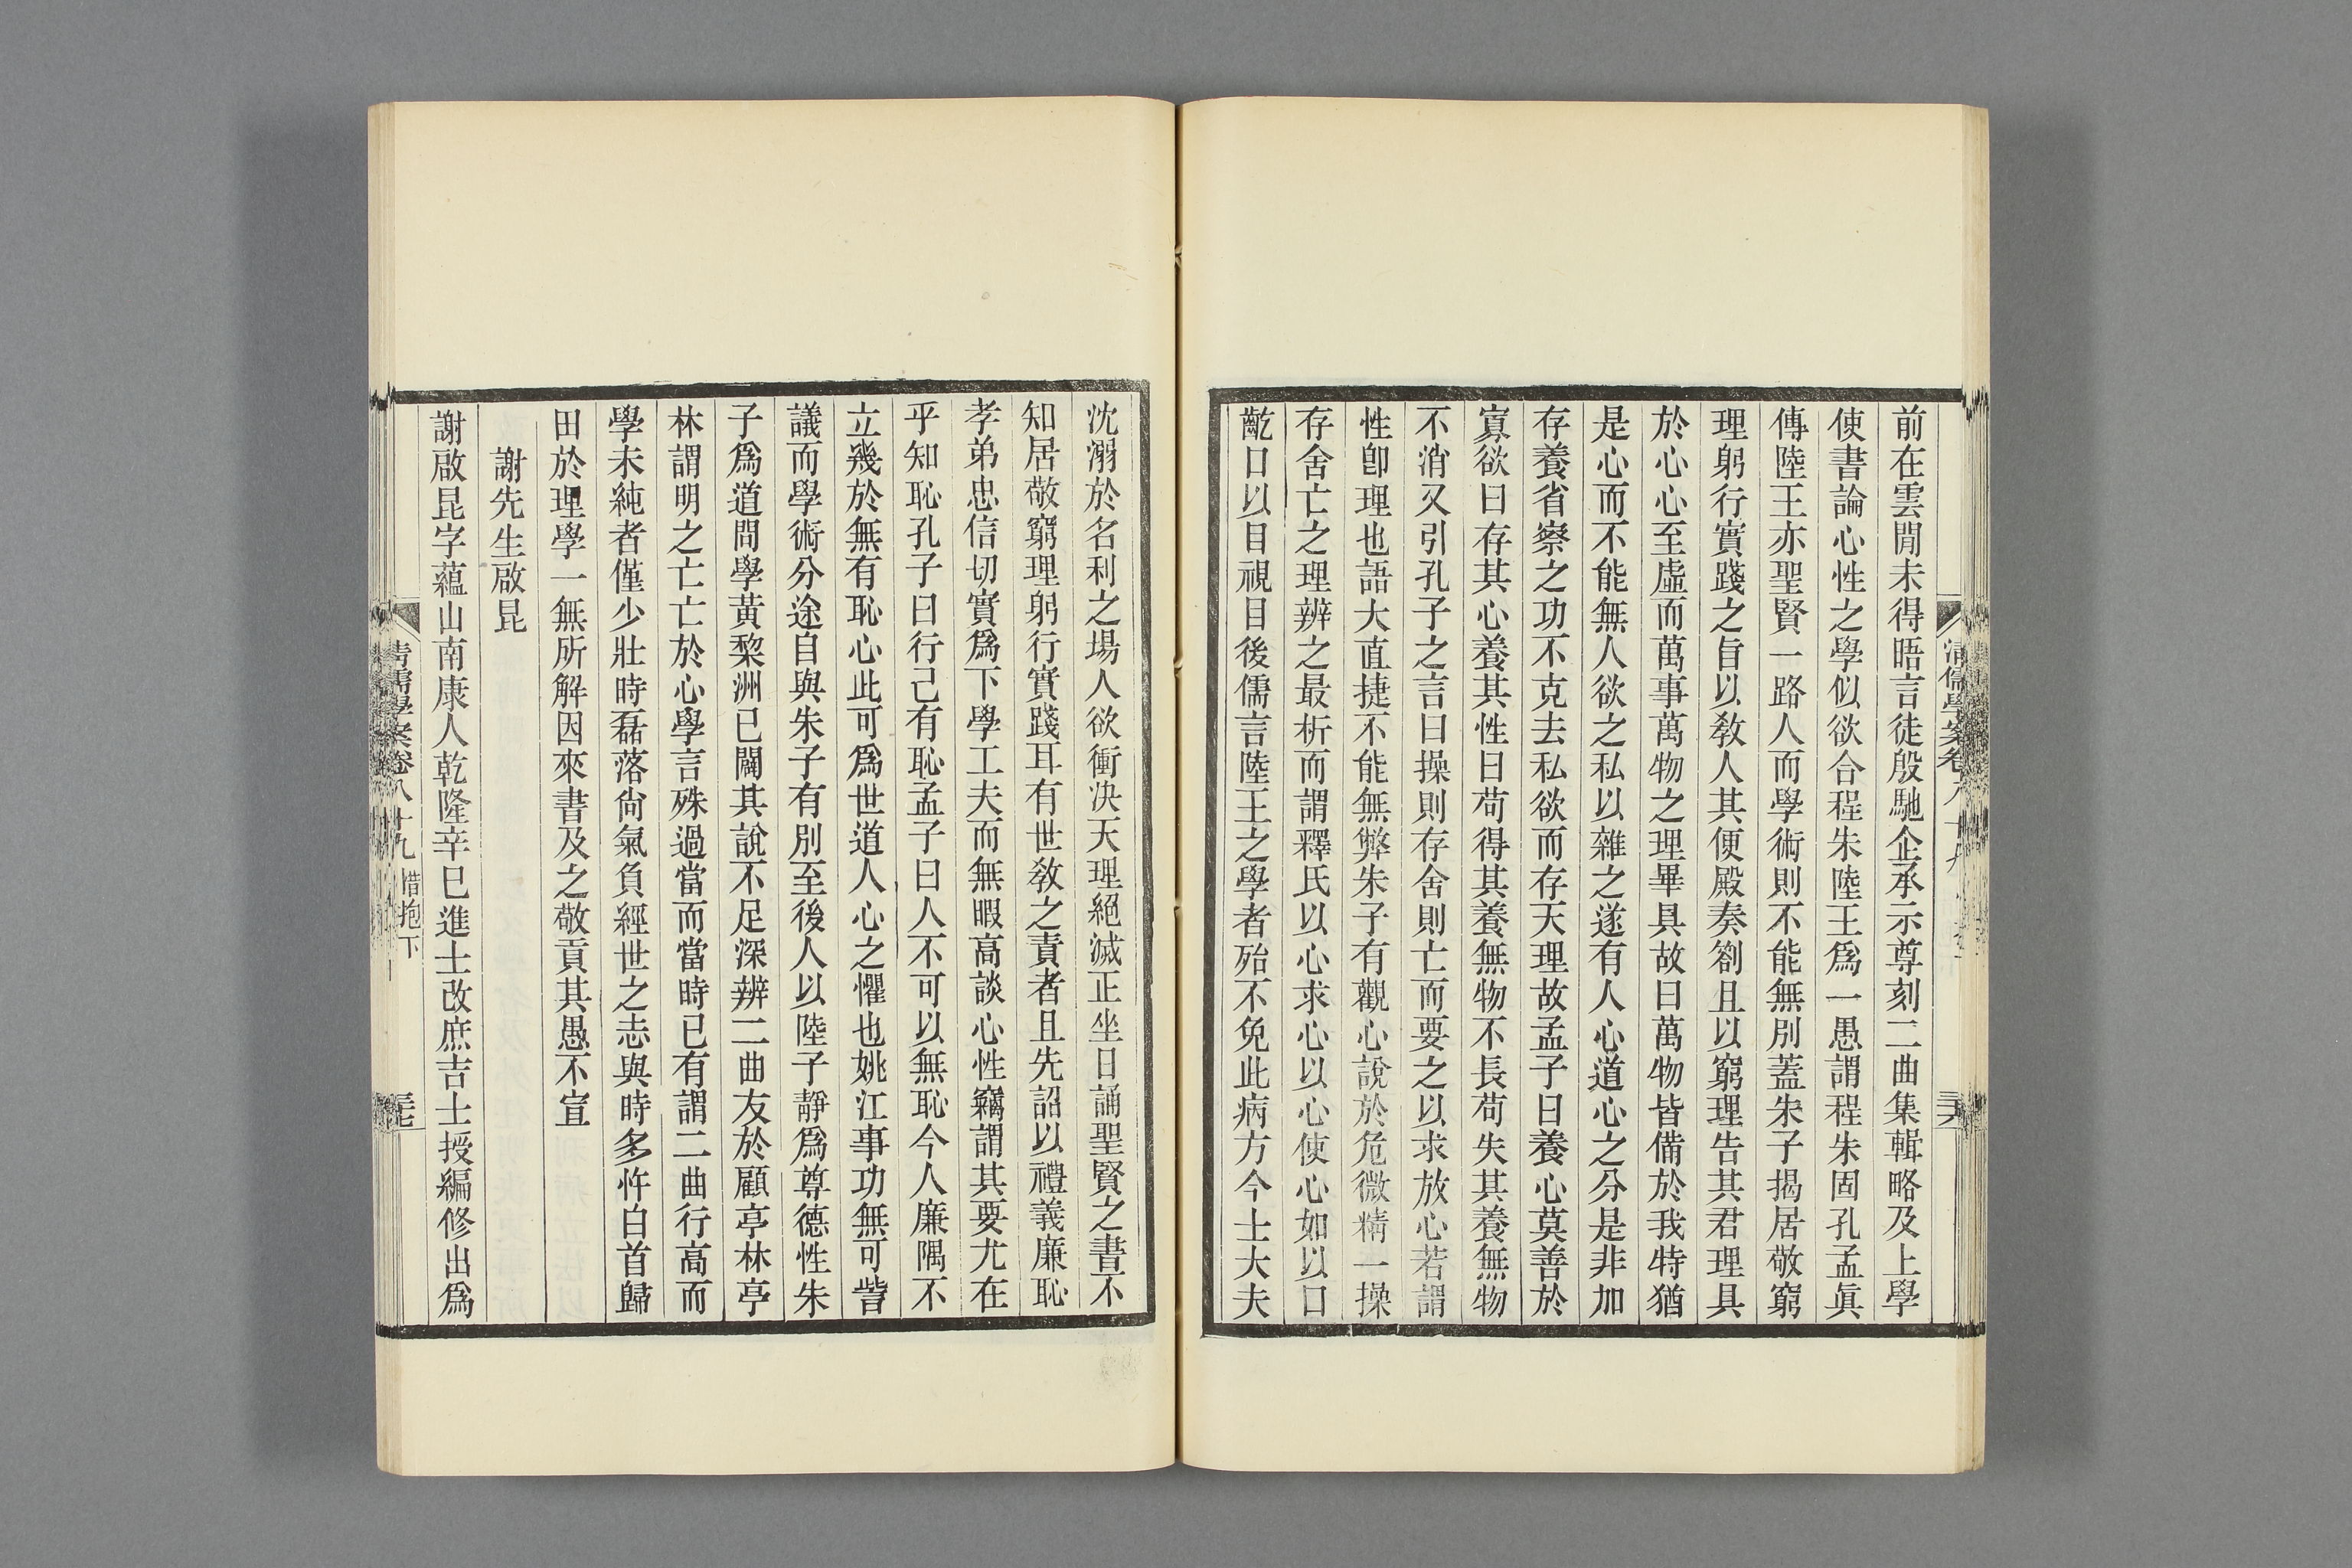 前在雲閒未得晤言徒殷馳企承示尊刻二曲集輯略及上學
使書論心性之學似欲合程朱陸王爲一愚謂程朱固孔孟眞
傳陸王亦聖賢一路人而學術則不能無別蓋朱子揭居敬窮
理躬行實踐之旨以敎人其便殿奏劄且以窮理告其君理具
於心心至虛而萬事萬物之理畢具故曰萬物皆備於我特猶
是心而不能無人欲之私以雜之遂有人心道心之分是非加
存養省察之功不克去私欲而存天理故孟子曰養心莫善於
寡欲曰存其心養其性曰苟得其養無物不長苟失其養無物
不消又引孔子之言曰操則存舍則亡而要之以求放心若謂
性卽理也語大直捷不能無弊朱子有觀心說於危微精一操
存舍亡之理辨之最析而謂釋氏以心求心以心使心如以口
齕口以目視目後儒言陸王之學者殆不免此病方今士大夫
沈溺於名利之場人欲衝決天理絕滅正坐日誦聖賢之書不
知居敬窮理躬行實踐耳有世敎之責者且先詔以禮義廉恥
孝弟忠信切實爲下學工夫而無暇高談心性竊謂其要尤在
乎知恥孔子曰行己有恥孟子曰人不可以無恥今人廉隅不
立幾於無有恥心此可爲世道人心之懼也姚江事功無可訾
議而學術分途自與朱子有別至後人以陸子靜爲尊德性朱
子爲道問學黃棃洲已闢其說不足深辨二曲友於顧亭林亭
林謂明之亡亡於心學言殊過當而當時已有謂二曲行高而
學未純者僅少壯時磊落尙氣負經世之志與時多忤白首歸
田於理學一無所解因來書及之敬貢其愚不宣
謝先生啟昆
謝啟昆字蘊山南康人乾隆辛巳進士改庶吉士授編修出爲
清儒學案卷八十九 惜抱下